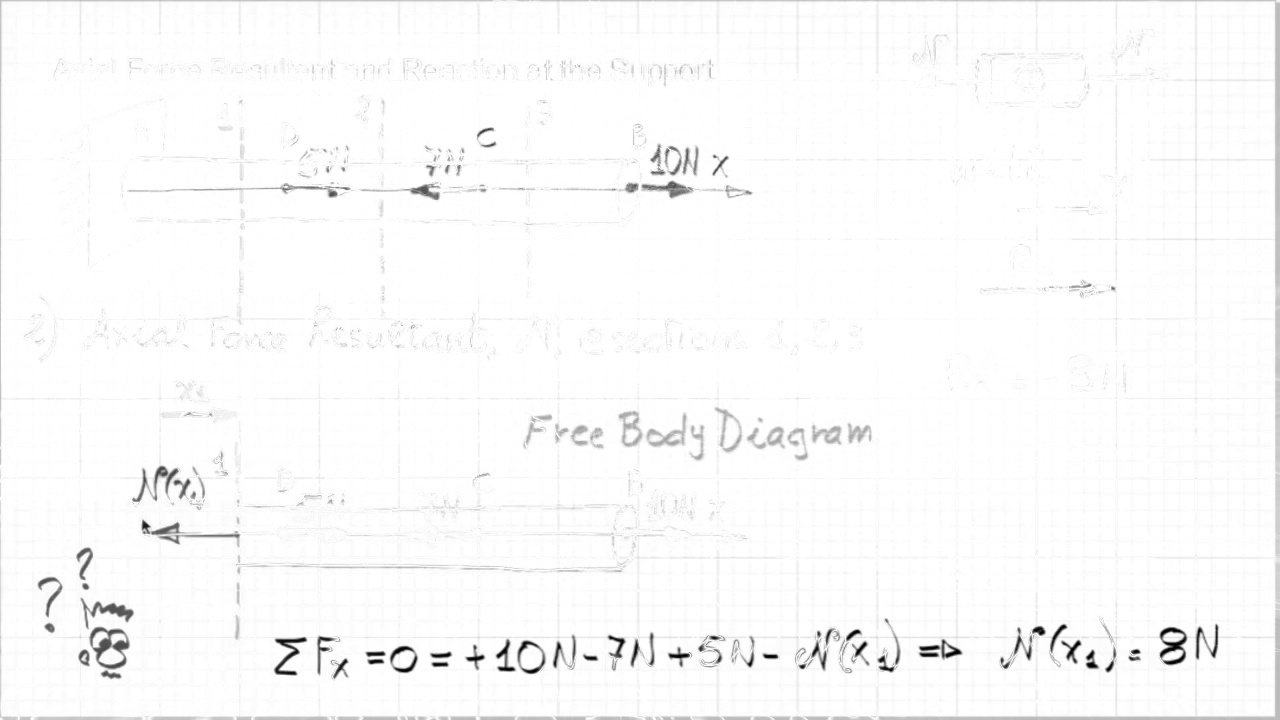 Axial Force Resultant and Reaction at the Support
N N
A 1 D 2 C 3 B
5N 7N 10N x
2) Axial Force Resultants, N, @ sections 1, 2, 3
x₁
Free Body Diagram
N(x₁) 1 D 5N 7N C B 10N x
? ?
ΣFx = 0 = +10N - 7N + 5N - N(x₁) => N(x₁) = 8N